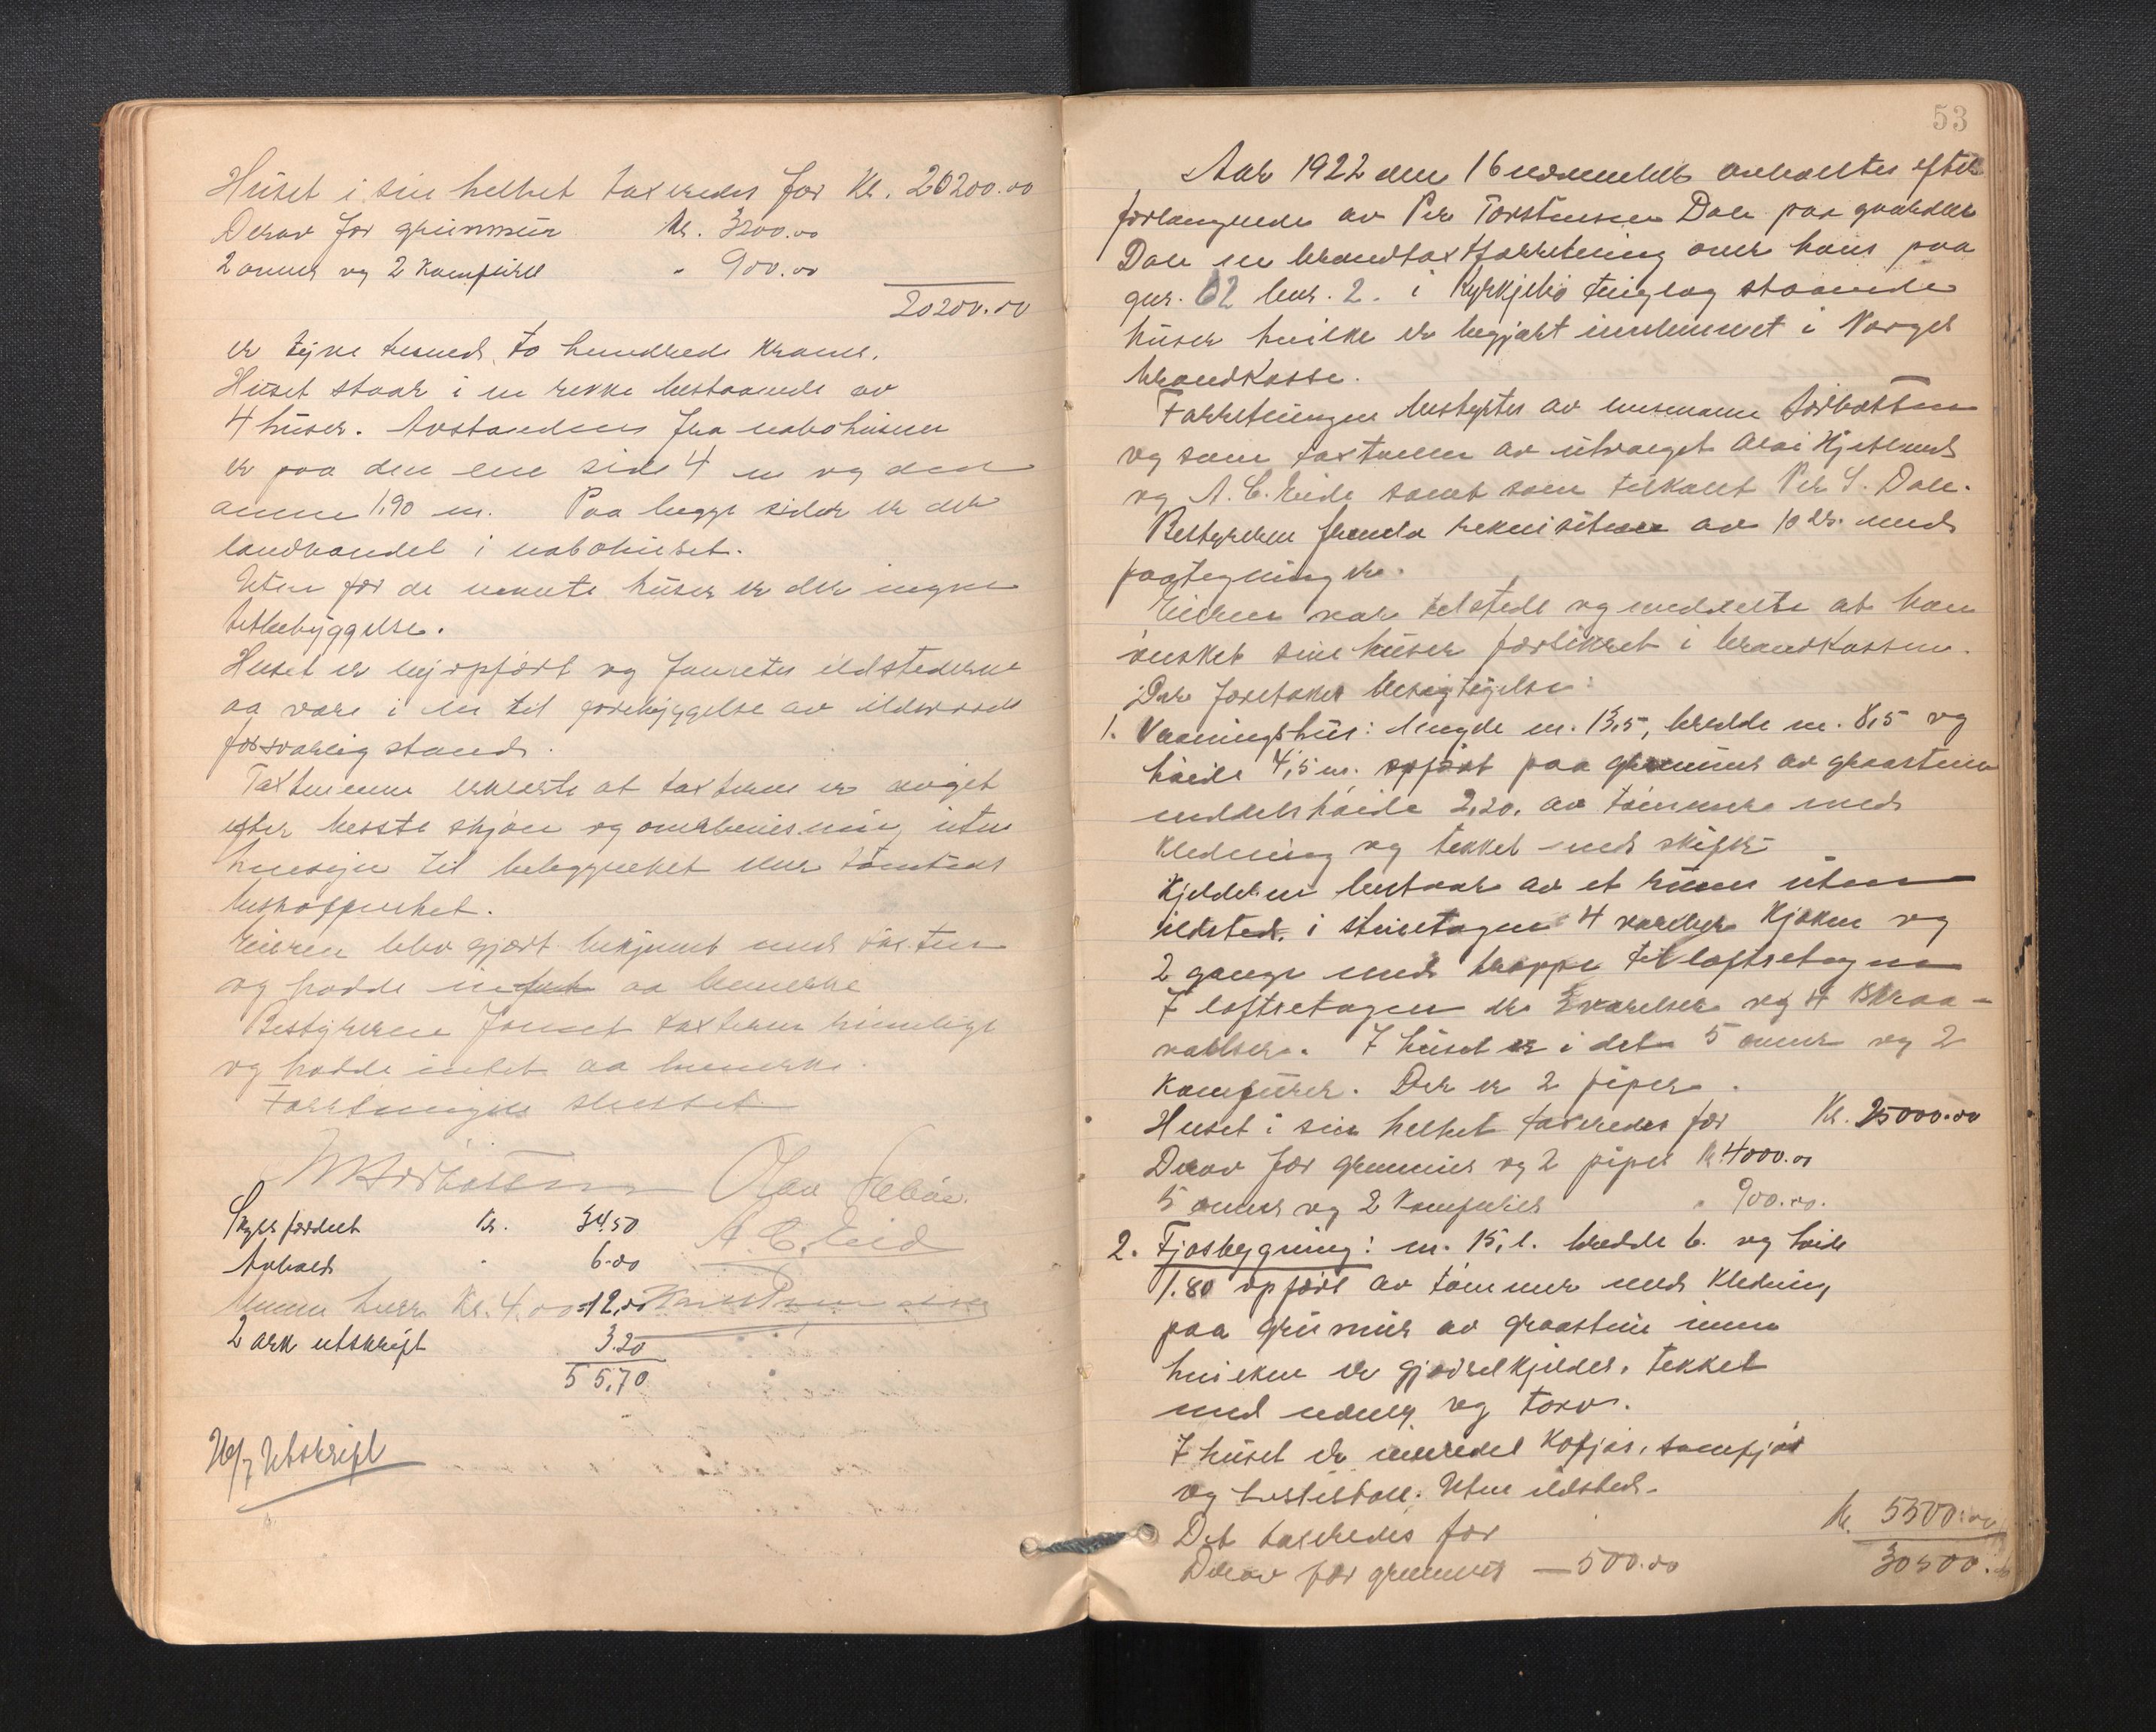 Huset i sin helhet taxeredes for Kr. 20200.00
Derav for grunmur Kr. 3200.00
2 ovner og 2 Komfurer " 900.00
20200.00
er tyve tusend to hundrede Kroner.
Huset staar i en rekke bestaaende av
4 huser. Avstanden fra nabohusene
er paa den ene side 4 m og den
annen 1,90 m. Paa begge sider er der
landhandel i nabohuset.
Uten for de nevnte huser er der ingen
tetbebyggelse.
Huset er nyopført og fantes ildstederne
aa være i en til forebyggelse av ildsvaade
forsvarlig stand.
Taxtmenne erklærte at taxterne er avgit
efter beste skjøn og overbevisning uten
hensyn til beleggenhet eller tomtens
beskaffenhet.
Eieren blev gjort bekjennt med taxten
og hadde intet aa bemerke
Bestyreren fannt taxterne rimelige
og hadde intet aa bemerke.
Forretningen sluttet
Olav
A. C. Eide
Skyssfordeel Kr. 34.50
Avhold " 6.00
Kr. 4.00 = 12.00
2 ark utskrift 3.20
55,70
Utskrift
53
Aar 1922 den 16 avholltes efter
forlangende av Per Torstensen Dale paa gaarden
Dale en brandtaxtforretning over hans paa
gnr. 62 bnr. 2. i Kyrkjebø tinglag staaende
huser hvilke er begjært innlemmet i Norges
brandkasse.
Forretningen bestyrtes av lensmann Ardbotten
og som taxtmenn av utvalget Olai Hjetland
og A. C. Eide samt som tilkallt Per S. Dale.
Bestyreren fremla rekvisition av 10 ds. med
paategning
Eieren var tilstede og meddelte at han
ønsket sine huser forsikret i brandkassen.
Der foretokes besigtigelse:
1. Vaaningshus: lengde m. 13,5, bredde m. 8,5 og
høide 4,5 m. opført paa grunmur av graasten
middelshøide 2,20. av tømmer med
kledning og tekket med skifer
Kjelderen bestaar av et rum uten
ildsted. i stuetagen 4 værelser Kjøken og
2 gange med trappe til loftsetagen
I loftsetagen er 3 værelser og 4 Skraa-
værelser. I huset er i det 5 ovner og 2
Komfurer. Der er 2 piper.
Huset i sin helhet taxeredes for Kr. 25000.00
Derav for grunmur og 2 piper Kr. 4000.00
5 ovner og 2 Komfurer " 900.00.
2. Fjosbygning: m. 15, l. bredde 6. og høide
1.80 opført av tømmer med Kledning
paa grunmur av graasten innen
hvilken er gjødselkjelder. tekket
med never og torv.
I huset er innredet Kofjøs, saufjøs
og hestestall. Uten ildsted.
Det taxeredes for Kr. 5500.00
Derav for grunmur — 500.00
30500.